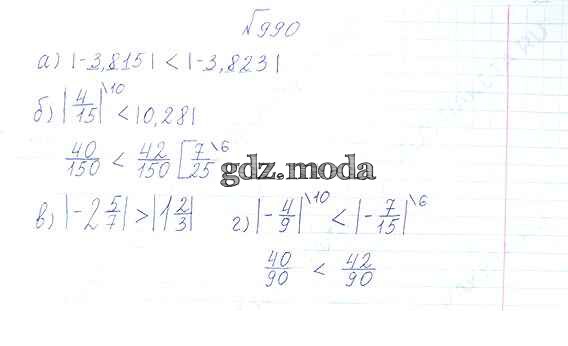 №990
а) |-3,815| < |-3,823|
б) |4/15|\10 < |0,28|
40/150 < 42/150 [7/25\6
gdz.moda
в) |-2 5/7| > |1 2/3| г) |-4/9|\10 < |-7/15|\6
40/90 < 42/90